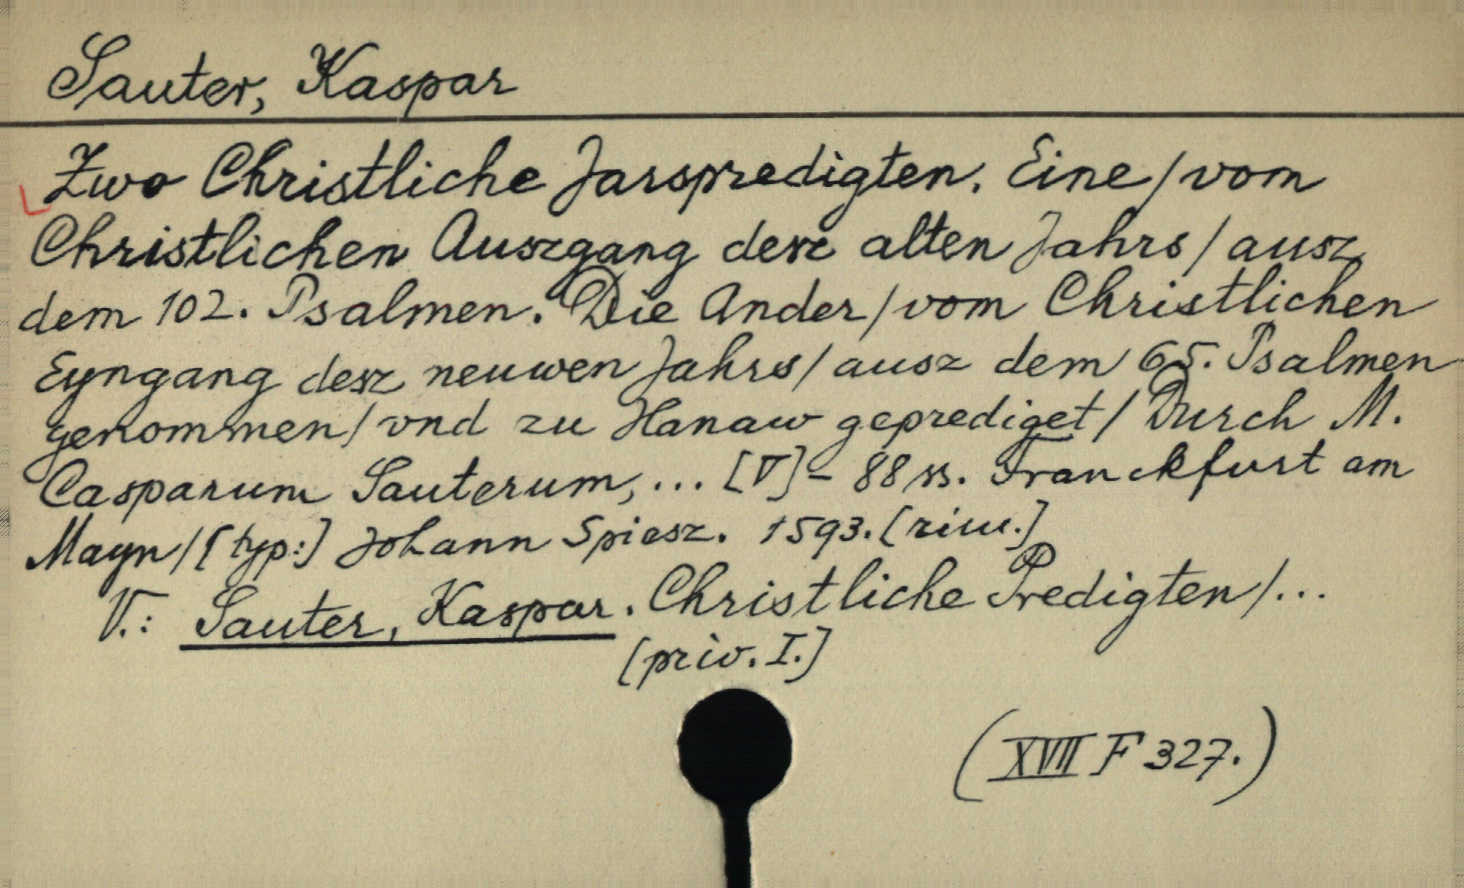 Sauter, Kaspar
Zwo Christliche Jarspredigten. Eine / vom
Christlichen Auszgang desz alten Jahrs / ausz
dem 102. Psalmen. Die Ander / vom Christlichen
Eyngang desz neuwen Jahrs / ausz dem 65. Psalmen
genommen / vnd zu Hanaw geprediget / Durch M.
Casparum Sauterum, ... [V] - 88 ss. Franckfurt am
Mayn / [typ:] Johann Spiesz. 1593. [riu.]
V.: Sauter, Kaspar. Christliche Predigten / ...
[priv. I.]
(XVII F 327.)